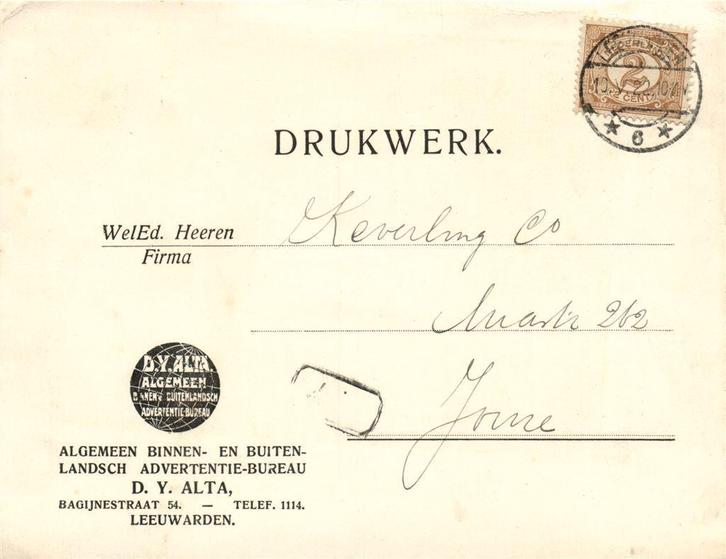 LEEUWARDEN
2
CENT
6
DRUKWERK.
WelEd. Heeren Keverling Co
Firma
Markt 262
Joure
D.Y. ALTA.
ALGEMEEN
BINNEN & BUITENLANDSCH
ADVERTENTIE-BUREAU
ALGEMEEN BINNEN- EN BUITEN-
LANDSCH ADVERTENTIE-BUREAU
D. Y. ALTA,
BAGIJNESTRAAT 54. — TELEF. 1114.
LEEUWARDEN.